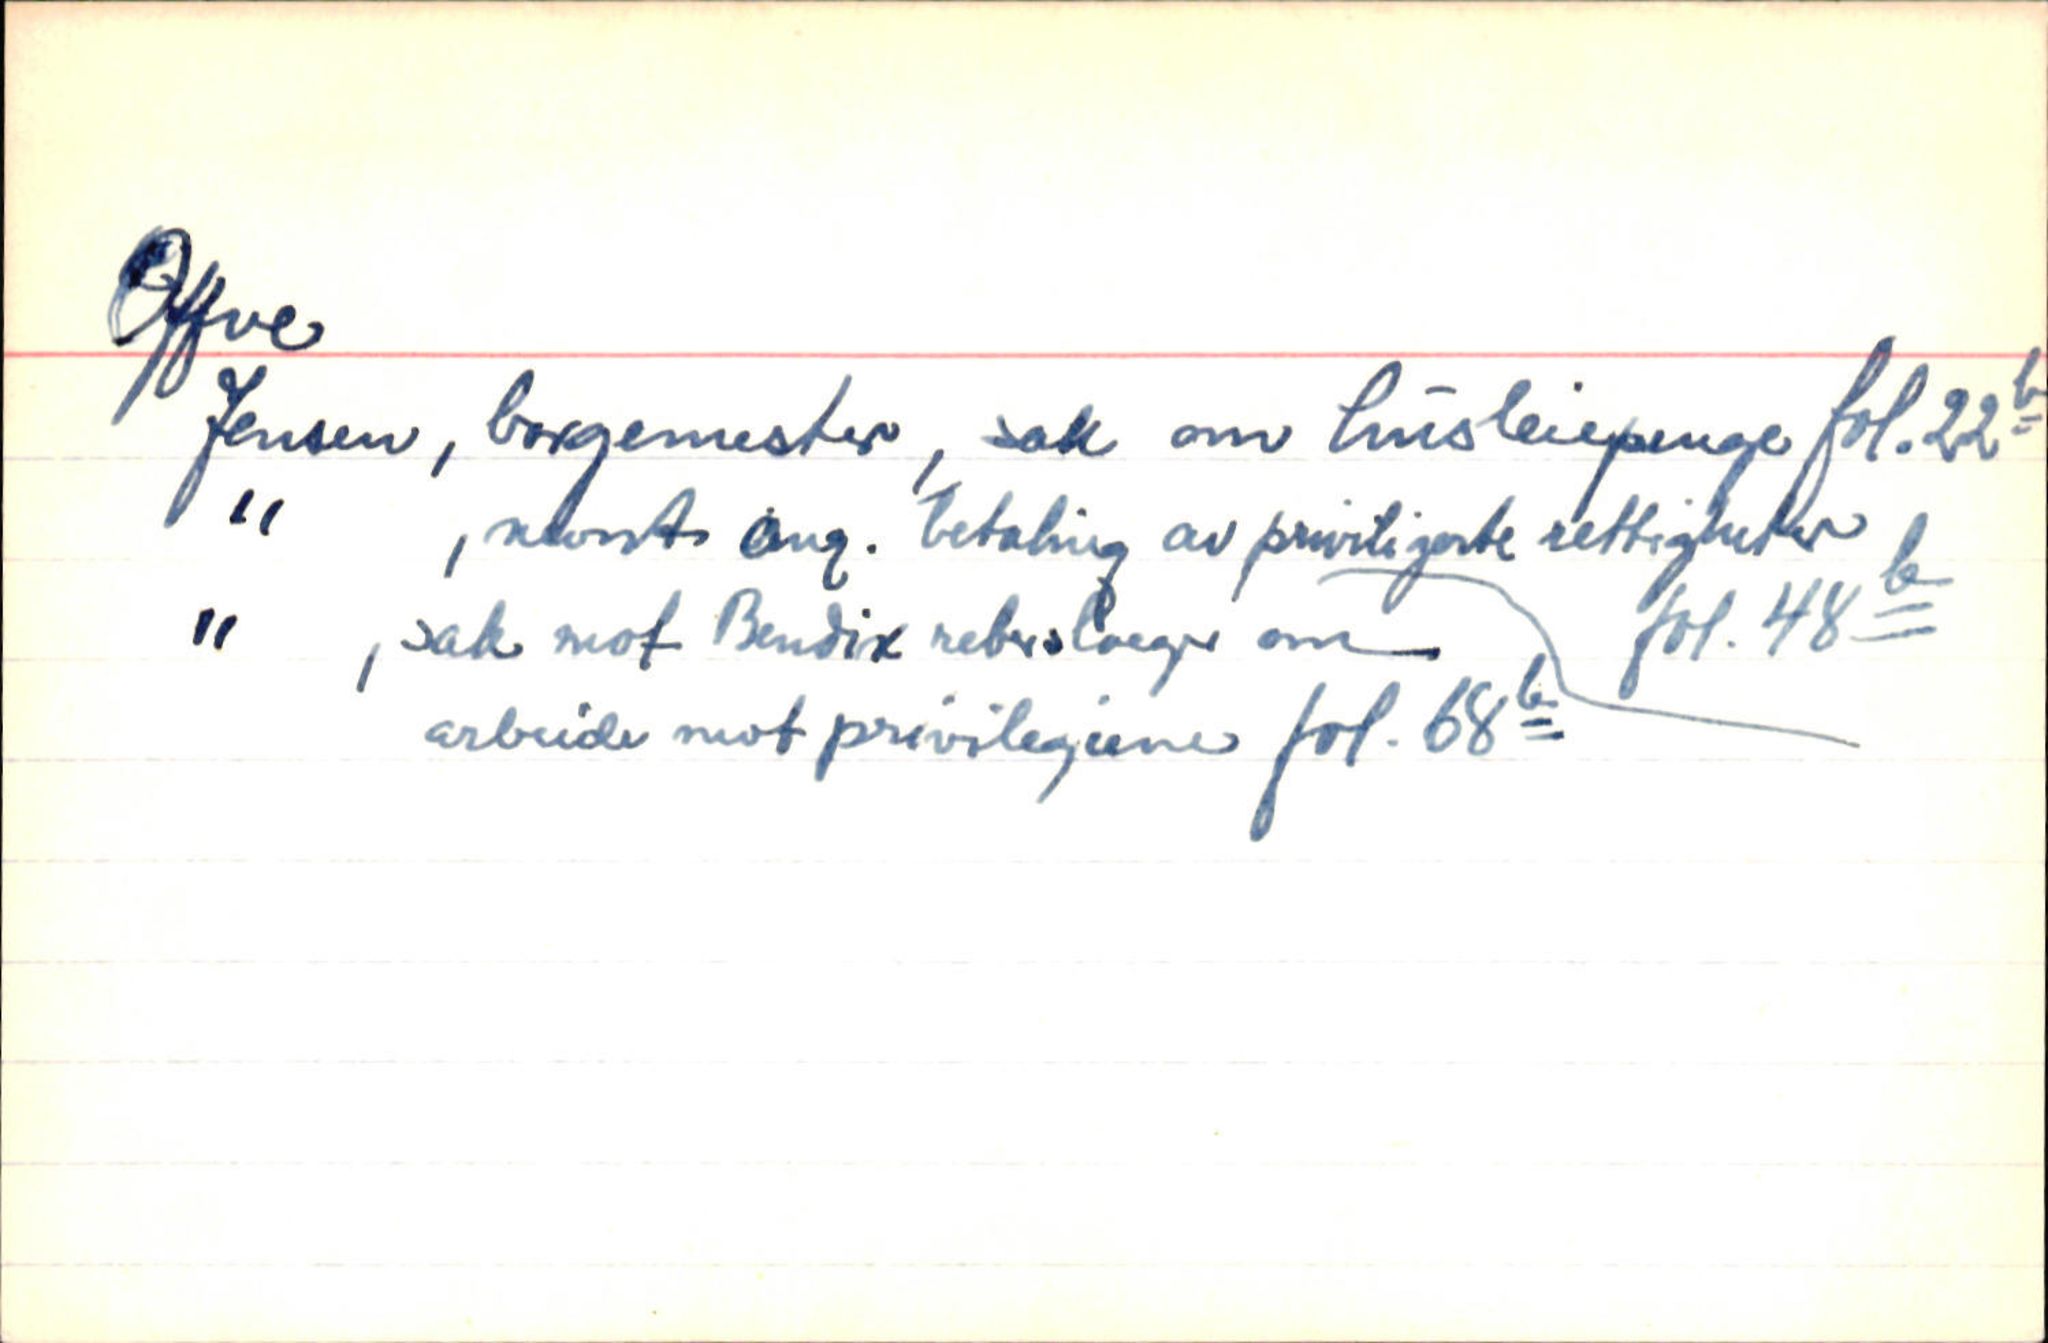 Offve
Jensen, borgemester, sak om husleiepenge fol. 22b
" , nevnt ang. betaling av priviligerte rettigheter
fol. 48b
" , sak mot Bendix rebslaeger om
arbeide mot privilegiene fol. 68b